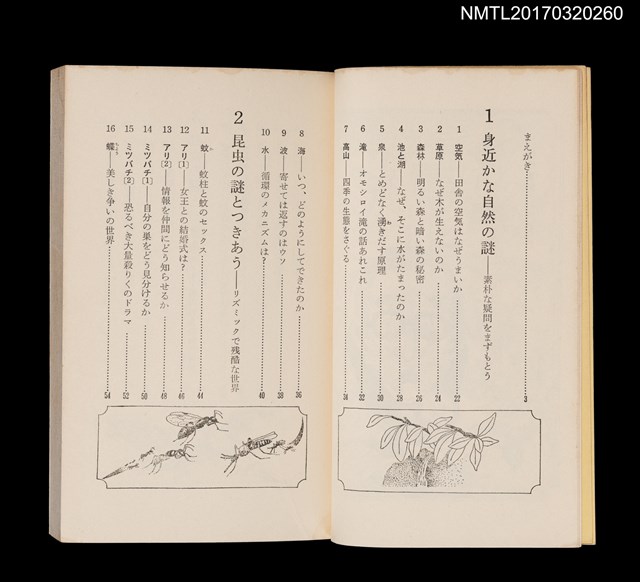 NMTL20170320260
まえがき 3
1 身近かな自然の謎──素朴な疑問をまずもとう
1 空気──田舎の空気はなぜうまいか 22
2 草原──なぜ木が生えないのか 24
3 森林──明るい森と暗い森の秘密 26
4 池と湖──なぜ、そこに水がたまったのか 28
5 泉──とめどなく湧きだす原理 30
6 滝──オモシロイ滝の話あれこれ 32
7 高山──四季の生態をさぐる 34
8 海──いつ、どのようにしてできたのか 36
9 波──寄せては返すのはウソ 38
10 水──循環のメカニズムは? 40
2 昆虫の謎とつきあう──リズミックで残酷な世界
11 蚊──蚊柱と蚊のセックス 44
12 アリ〔1〕──女王との結婚式は? 46
13 アリ〔2〕──情報を仲間にどう知らせるか 48
14 ミツバチ〔1〕──自分の巣をどう見分けるか 50
15 ミツバチ〔2〕──恐るべき大量殺りくのドラマ 52
16 蝶──美しき争いの世界 54